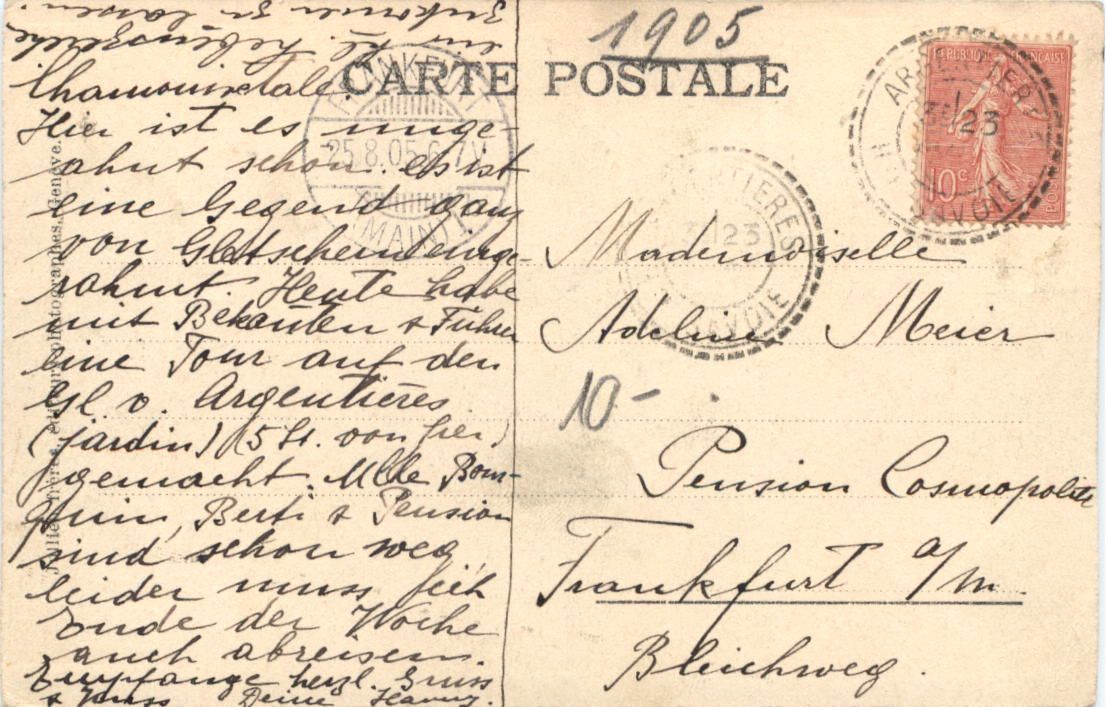 1905
CARTE POSTALE
RÉPUBLIQUE FRANÇAISE
10c
POSTES
23
SAVOIE
FRANKFURT
25.8.05.6-7V.
(MAIN)
ARGENTIÈRES
23
SAVOIE
Jullien frères, phototographes, Genève.
ein kl. Lebenszeichen
zukommen zu lassen.
Chamounixtale
Hier ist es unge-
ahnt schön. es ist
eine Gegend ganz
von Gletschern umge-
rahmt. Heute habe
mit Bekannten & Führer
eine Tour auf den
Gl. v. Argentières
(jardin) (5 St. von hier)
gemacht. Mlle
Berti & Pension
sind schon weg
leider muss ich
Ende der Woche
auch abreisen.
Empfange herzl. Gruss
& Kuss Deine
Mademoiselle
Adeline Meier
10-
Pension Cosmopolite
Frankfurt a/M
Bleichweg.